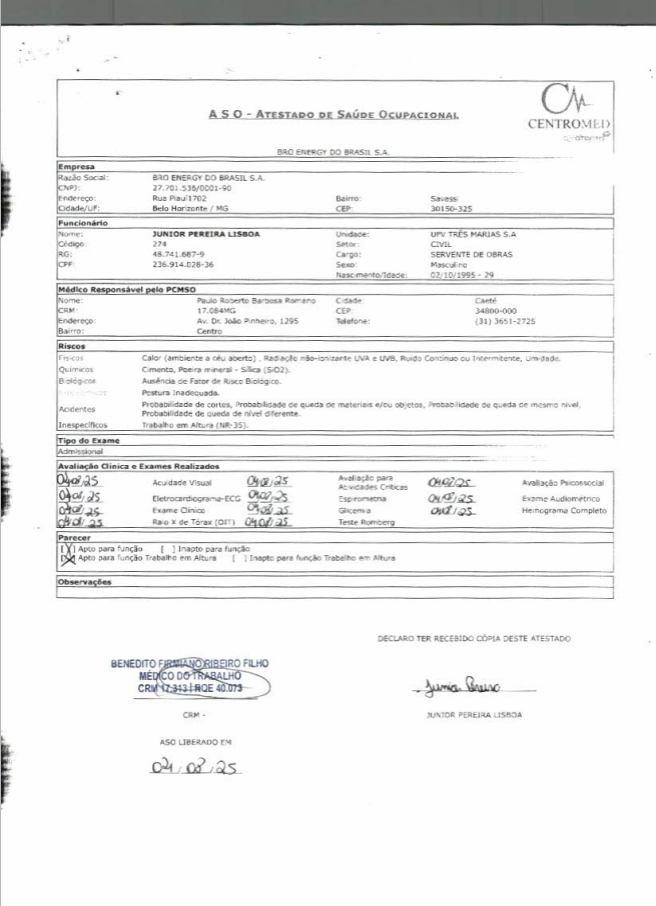 A S O - ATESTADO DE SAÚDE OCUPACIONAL
CENTROMED
BRO ENERGY DO BRASIL S.A.
Empresa
Razão Social: BRO ENERGY DO BRASIL S.A.
CNPJ: 27.701.536/0001-90
Endereço: Rua Piauí1702 Bairro: Savassi
Cidade/UF: Belo Horizonte / MG CEP: 30150-325
Funcionário
Nome: JUNIOR PEREIRA LISBOA Unidade: UFV TRÊS MARIAS S.A
Código: 274 Setor: CIVIL
RG: 48.741.687-9 Cargo: SERVENTE DE OBRAS
CPF: 236.914.028-36 Sexo: Masculino
Nascimento/Idade: 02/10/1995 - 29
Médico Responsável pelo PCMSO
Nome: Paulo Roberto Barbosa Romano Cidade: Caeté
CRM: 17.084MG CEP: 34800-000
Endereço: Av. Dr. João Pinheiro, 1295 Telefone: (31) 3651-2725
Bairro: Centro
Riscos
Físicos Calor (ambiente a céu aberto) , Radiação não-ionizante UVA e UVB, Ruído Contínuo ou Intermitente, Umidade.
Químicos Cimento, Poeira mineral - Sílica (SiO2).
Biológicos Ausência de Fator de Risco Biológico.
Postura Inadequada.
Acidentes Probabilidade de cortes, Probabilidade de queda de materiais e/ou objetos, Probabilidade de queda de mesmo nível,
Probabilidade de queda de nível diferente.
Inespecíficos Trabalho em Altura (NR-35).
Tipo do Exame
Admissional
Avaliação Clínica e Exames Realizados
04/08/25 Acuidade Visual 04/08/25 Avaliação para Atividades Críticas 04/08/25 Avaliação Psicossocial
04/08/25 Eletrocardiograma-ECG 04/08/25 Espirometria 04/08/25 Exame Audiométrico
04/08/25 Exame Clínico 04/08/25 Glicemia 04/08/25 Hemograma Completo
04/08/25 Raio X de Tórax (OIT) 04/08/25 Teste Romberg
Parecer
(X) Apto para função [ ] Inapto para função
[X] Apto para função Trabalho em Altura [ ] Inapto para função Trabalho em Altura
Observações
DECLARO TER RECEBIDO CÓPIA DESTE ATESTADO
BENEDITO FIRMIANO RIBEIRO FILHO
MÉDICO DO TRABALHO
CRM 17.313 | RQE 40.073
CRM -
JUNIOR PEREIRA LISBOA
ASO LIBERADO EM
04/08/25